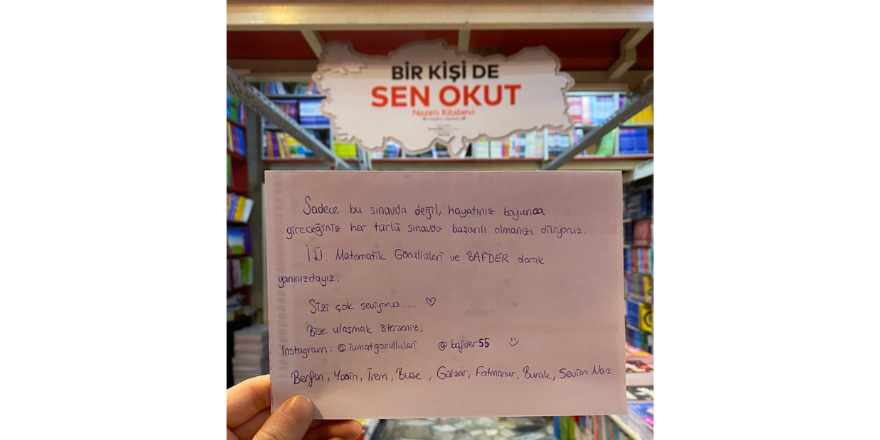 BİR KİŞİ DE
SEN OKUT
Nazım Kitabevi
Sadece bu sınavda değil, hayatınız boyunca
gireceğiniz her türlü sınavda başarılı olmanızı diliyoruz.
İ.Ü. Matematik Gönüllüleri ve BAFDER olarak
yanınızdayız.
Sizi çok seviyoruz... ♡
Bize ulaşmak isterseniz;
Instagram: @iumatgonulluleri @bafder55 :)
Berfin, Yasin, İrem, Buse, Gülzar, Fatmanur, Burak, Sevim Naz